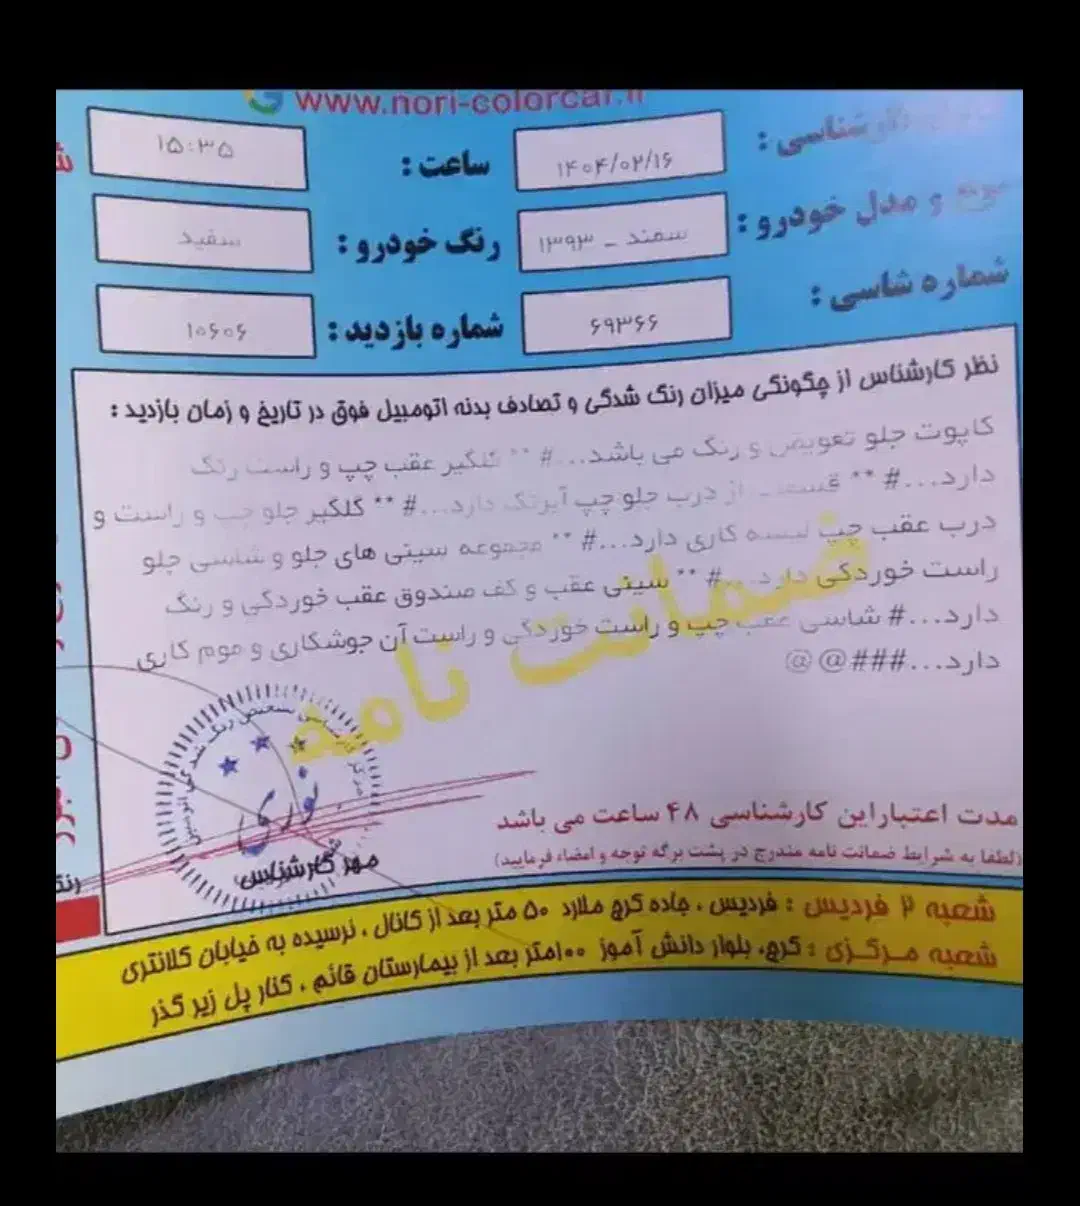 www.nori-colorcar.ir
کارشناسی : ۱۴۰۴/۰۲/۱۶ ساعت : ۱۵:۳۵
نوع و مدل خودرو : سمند _ ۱۳۹۳ رنگ خودرو : سفید
شماره شاسی : ۶۹۳۶۶ شماره بازدید : ۱۰۶۰۶
نظر کارشناس از چگونگی میزان رنگ شدگی و تصادف بدنه اتومبیل فوق در تاریخ و زمان بازدید :
کاپوت جلو تعویض و رنگ می باشد...# ** گلگیر عقب چپ و راست رنگ
دارد...# ** قسمتی از درب جلو چپ آبرنگ دارد...# ** گلگیر جلو چپ و راست و
درب عقب چپ لیسه کاری دارد...# ** مجموعه سینی های جلو و شاسی جلو
راست خوردگی دارد...# ** سینی عقب و کف صندوق عقب خوردگی و رنگ
دارد...# شاسی عقب چپ و راست خوردگی و راست آن جوشکاری و موم کاری
دارد...###@@
ضمانت نامه
مرکز کارشناسی تشخیص رنگ شدگی اتومبیل
نوری
مهر کارشناس
مدت اعتبار این کارشناسی ۴۸ ساعت می باشد
(لطفا به شرایط ضمانت نامه مندرج در پشت برگه توجه و امضاء فرمایید)
شعبه ۲ فردیس : فردیس ، جاده کرج ملارد ۵۰ متر بعد از کانال ، نرسیده به خیابان کلانتری
شعبه مرکزی : کرج، بلوار دانش آموز ۱۰۰متر بعد از بیمارستان قائم ، کنار پل زیر گذر